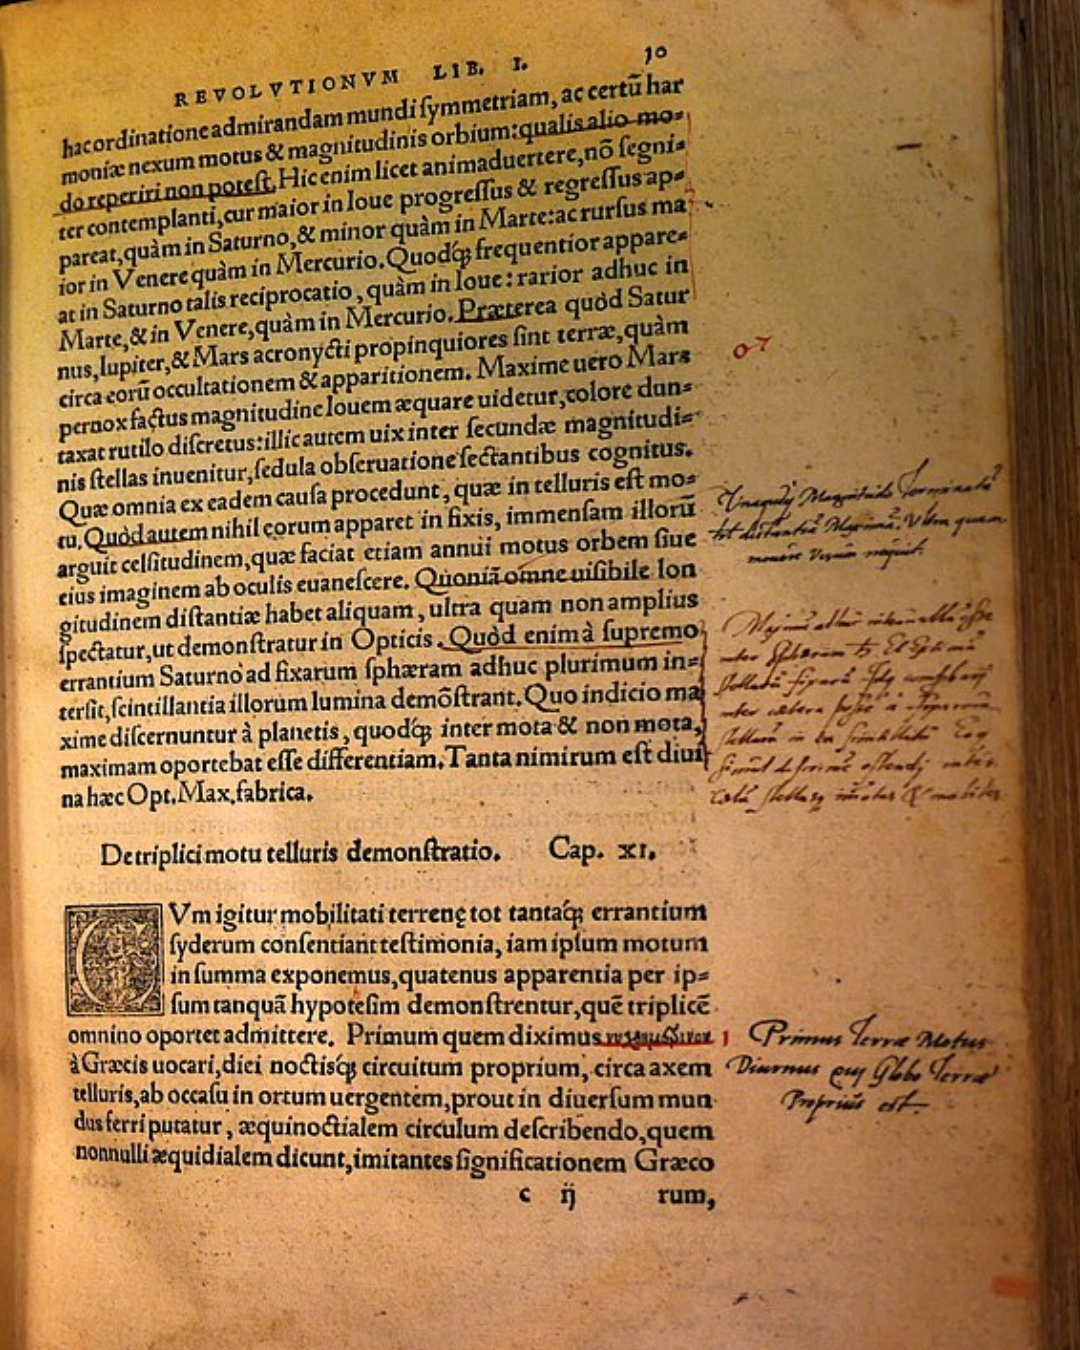 REVOLVTIONVM LIB. I. 10
hac ordinatione admirandam mundi ſymmetriam, ac certũ har
moniæ nexum motus & magnitudinis orbium: qualis alio mo⸗
do reperiri non poteſt. Hic enim licet animaduertere, nõ ſegni⸗
ter contemplanti, cur maior in Ioue progreſſus & regreſſus ap⸗
pareat, quàm in Saturno, & minor quàm in Marte: ac rurſus ma
ior in Venere quàm in Mercurio. Quodq́; frequentior appare⸗
at in Saturno talis reciprocatio, quàm in Ioue: rarior adhuc in
Marte, & in Venere, quàm in Mercurio. Præterea quòd Satur
nus, Iupiter, & Mars acronycti propinquiores ſint terræ, quàm
circa eorũ occultationem & apparitionem. Maxime uero Mars
pernox factus magnitudine Iouem æquare uidetur, colore dun⸗
taxat rutilo diſcretus: illic autem uix inter ſecundæ magnitudi⸗
nis ſtellas inuenitur, ſedula obſeruatione ſectantibus cognitus.
Quæ omnia ex eadem cauſa procedunt, quæ in telluris eſt mo⸗
tu. Quòd autem nihil eorum apparet in fixis, immenſam illorũ
arguit celſitudinem, quæ faciat etiam annui motus orbem ſiue
eius imaginem ab oculis euaneſcere. Quoniã omne uiſibile lon
gitudinem diſtantiæ habet aliquam, ultra quam non amplius
ſpectatur, ut demonſtratur in Opticis. Quòd enim à ſupremo
errantium Saturno ad fixarum ſphæram adhuc plurimum in⸗
terſit, ſcintillantia illorum lumina demõſtrant. Quo indicio ma
xime diſcernuntur à planetis, quodq́; inter mota & non mota,
maximam oportebat eſſe differentiam. Tanta nimirum eſt diui
na hæc Opt. Max. fabrica.
De triplici motu telluris demonſtratio. Cap. XI.
CVm igitur mobilitati terrenę tot tantaq́; errantium
ſyderum conſentiant teſtimonia, iam ipſum motum
in ſumma exponemus, quatenus apparentia per ip⸗
ſum tanquã hypoteſim demonſtrentur, quẽ triplicẽ
omnino oportet admittere. Primum quem diximus
à Græcis uocari, diei noctisq́; circuitum proprium, circa axem
telluris, ab occaſu in ortum uergentem, prout in diuerſum mun
dus ferri putatur, æquinoctialem circulum deſcribendo, quem
nonnulli æquidialem dicunt, imitantes ſignificationem Græco
c ij rum,
Magnitudo
1 Primus Terræ Motus
Diurnus Globo Terræ
Proprius est.